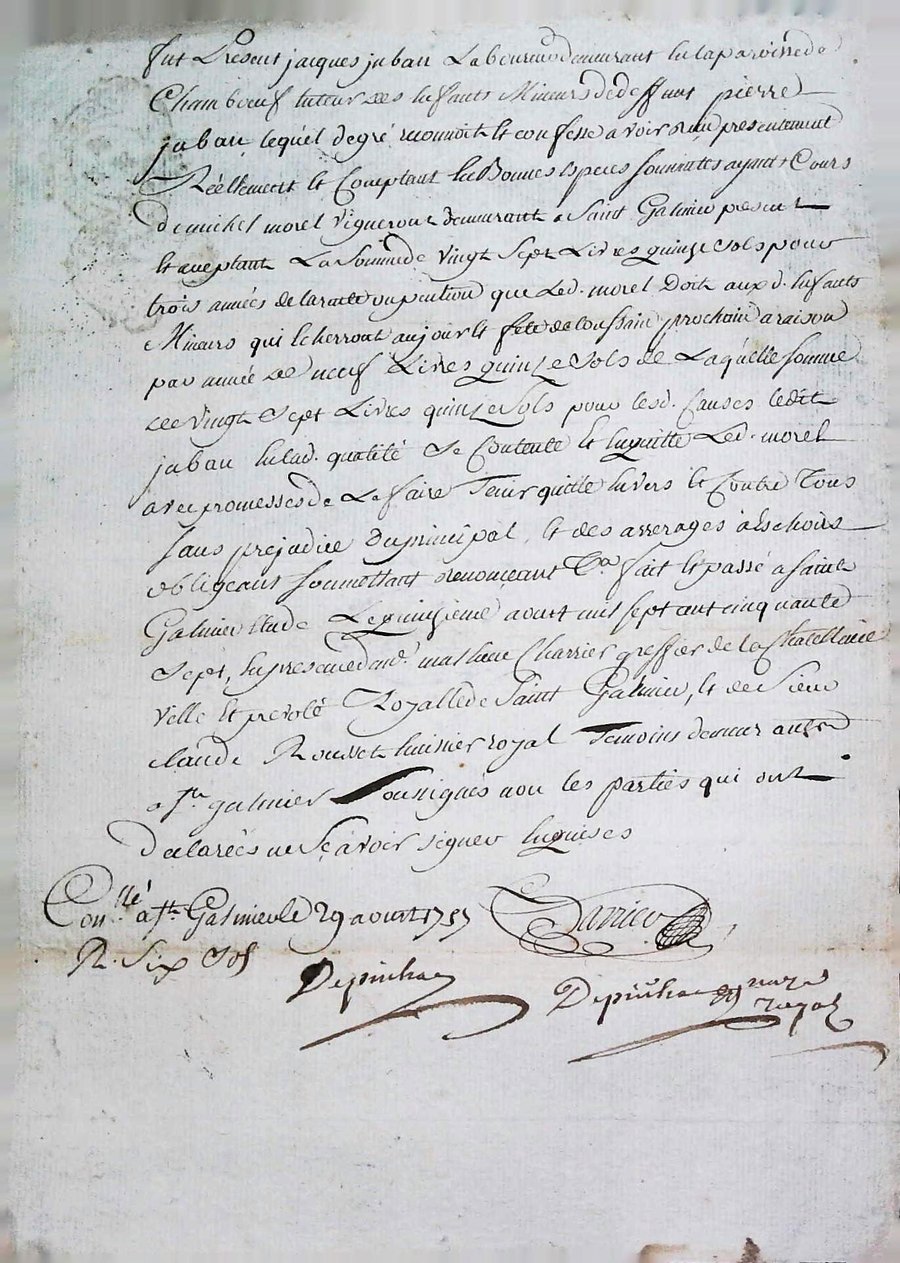 fut Present jacques juban Laboureur demeurant en la paroisse de
Chambœuf tuteur des enfants Mineurs de deffunt pierre
juban, lequel de gré reconnoit et confesse avoir reçu presentement
Réellement et Comptant en Bonnes espeses sonnantes ayant Cours
de michel morel vigneron demeurant a Saint Galmier present
et aceptant La Somme de vingt Sept Livres quinze sols pour
trois années de la rente ou pention que Led. morel Doit aux d. enfants
Mineurs qui écherront au jour et fete de toussain prochain a raison
par année de neuf Livres quinze Sols de Laquelle somme
de vingt Sept Livres quinze Sols pour lesd. Causes ledit
juban en lad. qualité Se Contente et en quitte Led. morel
avec promesses de Le faire Tenir quitte envers et Contre Tous
sans prejudice du principal, et des arrerages à eschoirs
obligeant soumettant renonceant &a. fait et passé a Saint
Galmier Etude Le quinzieme aoust mil sept cent cinquante
Sept, en presence de me. mathieu Charrier greffier de la Chatellainie
ville et prevoté Royalle de Saint Galmier, et de Sieur
claude Rousset huisier royal Temoins demeurants
a St. galmier Soussignés non les parties qui ont
declarées ne Sçavoir signer enquises
Con.llé à St. Galmier le 29 aoust 1757 Charrier
R. Six Sols
Depinhac Depinhac
royal